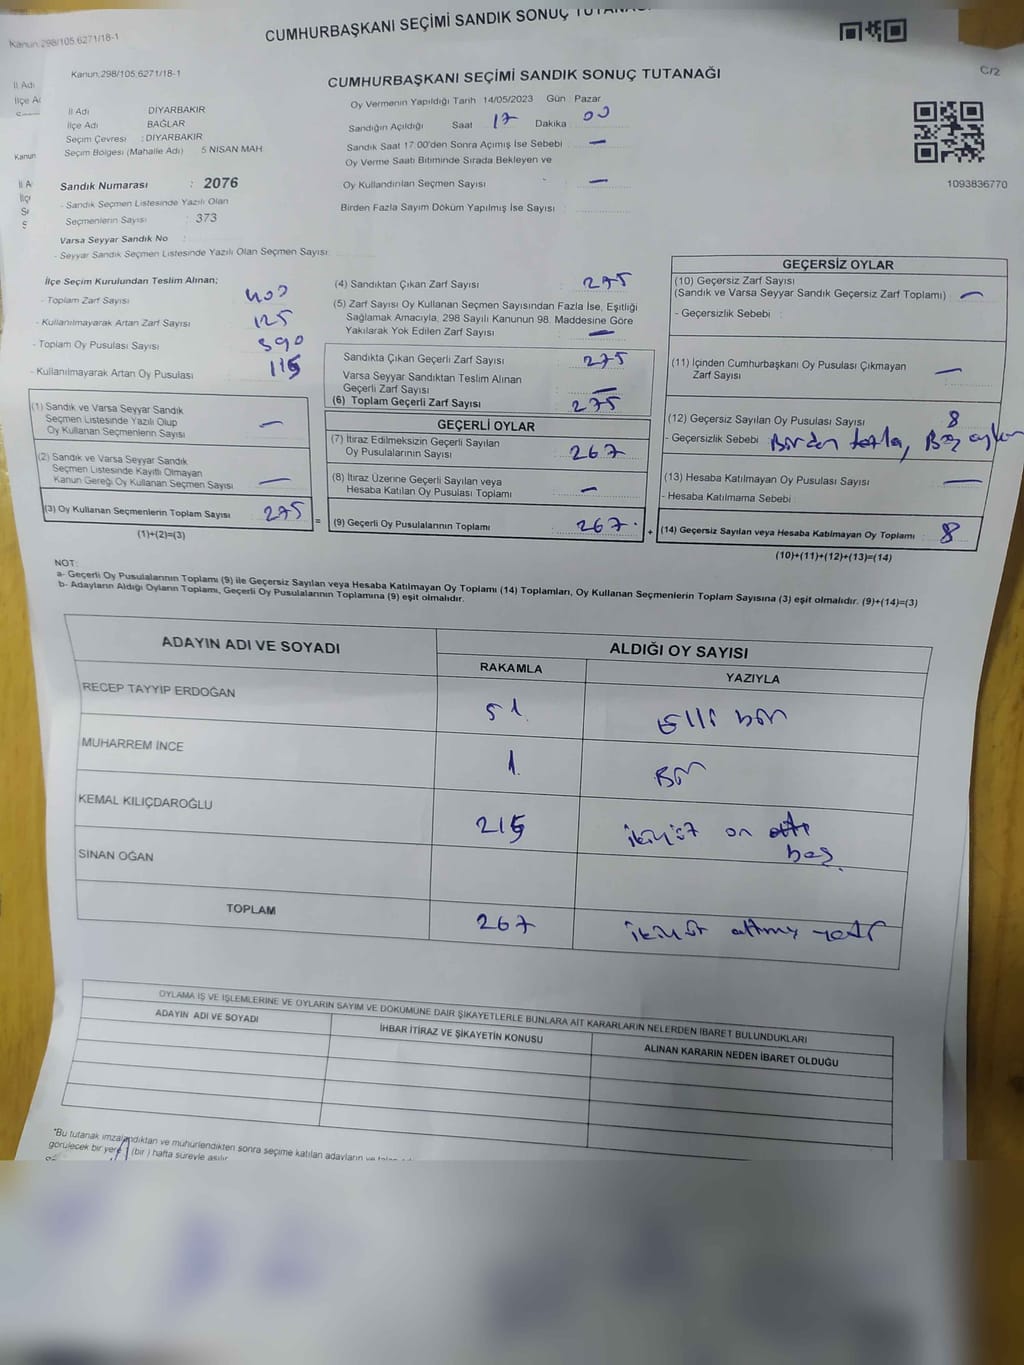 Kanun;298/105.6271/18-1
CUMHURBAŞKANI SEÇİMİ SANDIK SONUÇ TUTANAĞI
İl Adı
İlçe Ad
Kanun
Kanun;298/105;6271/18-1
CUMHURBAŞKANI SEÇİMİ SANDIK SONUÇ TUTANAĞI
C/2
İl Adı DİYARBAKIR
İlçe Adı BAĞLAR
Seçim Çevresi : DİYARBAKIR
Seçim Bölgesi (Mahalle Adı) 5 NİSAN MAH.
Sandık Numarası : 2076
- Sandık Seçmen Listesinde Yazılı Olan
Seçmenlerin Sayısı : 373
Varsa Seyyar Sandık No :
- Seyyar Sandık Seçmen Listesinde Yazılı Olan Seçmen Sayısı:
Oy Vermenin Yapıldığı Tarih 14/05/2023 Gün : Pazar
Sandığın Açıldığı Saat 17 Dakika 00
Sandık Saat 17.00'den Sonra Açımış İse Sebebi —
Oy Verme Saati Bitiminde Sırada Bekleyen ve
Oy Kullandırılan Seçmen Sayısı : —
Birden Fazla Sayım Döküm Yapılmış İse Sayısı :
1093836770
İlçe Seçim Kurulundan Teslim Alınan;
- Toplam Zarf Sayısı 400
- Kullanılmayarak Artan Zarf Sayısı 125
- Toplam Oy Pusulası Sayısı 390
- Kullanılmayarak Artan Oy Pusulası 115
(1) Sandık ve Varsa Seyyar Sandık
Seçmen Listesinde Yazılı Olup
Oy Kullanan Seçmenlerin Sayısı —
(2) Sandık ve Varsa Seyyar Sandık
Seçmen Listesinde Kayıtlı Olmayan
Kanun Gereği Oy Kullanan Seçmen Sayısı —
(3) Oy Kullanan Seçmenlerin Toplam Sayısı 275
(1)+(2)=(3)
(4) Sandıktan Çıkan Zarf Sayısı 275
(5) Zarf Sayısı Oy Kullanan Seçmen Sayısından Fazla İse, Eşitliği
Sağlamak Amacıyla, 298 Sayılı Kanunun 98. Maddesine Göre
Yakılarak Yok Edilen Zarf Sayısı —
Sandıkta Çıkan Geçerli Zarf Sayısı 275
Varsa Seyyar Sandıktan Teslim Alınan
Geçerli Zarf Sayısı —
(6) Toplam Geçerli Zarf Sayısı 275
GEÇERLİ OYLAR
(7) İtiraz Edilmeksizin Geçerli Sayılan
Oy Pusulalarının Sayısı 267
(8) İtiraz Üzerine Geçerli Sayılan veya
Hesaba Katılan Oy Pusulası Toplamı —
= (9) Geçerli Oy Pusulalarının Toplamı 267
GEÇERSİZ OYLAR
(10) Geçersiz Zarf Sayısı
(Sandık ve Varsa Seyyar Sandık Geçersiz Zarf Toplamı) —
- Geçersizlik Sebebi :
(11) İçinden Cumhurbaşkanı Oy Pusulası Çıkmayan
Zarf Sayısı —
(12) Geçersiz Sayılan Oy Pusulası Sayısı 8
- Geçersizlik Sebebi Birden fazla, Boş
(13) Hesaba Katılmayan Oy Pusulası Sayısı —
- Hesaba Katılmama Sebebi
+ (14) Geçersiz Sayılan veya Hesaba Katılmayan Oy Toplamı 8
(10)+(11)+(12)+(13)=(14)
NOT:
a- Geçerli Oy Pusulalarının Toplamı (9) ile Geçersiz Sayılan veya Hesaba Katılmayan Oy Toplamı (14) Toplamları, Oy Kullanan Seçmenlerin Toplam Sayısına (3) eşit olmalıdır. (9)+(14)=(3)
b- Adayların Aldığı Oyların Toplamı, Geçerli Oy Pusulalarının Toplamına (9) eşit olmalıdır.
ADAYIN ADI VE SOYADI ALDIĞI OY SAYISI
RAKAMLA YAZIYLA
RECEP TAYYİP ERDOĞAN 51 Elli bir
MUHARREM İNCE 1 Bir
KEMAL KILIÇDAROĞLU 215 ikiyüz on
beş
SİNAN OĞAN
TOPLAM 267 ikiyüz altmış yedi
OYLAMA İŞ VE İŞLEMLERİNE VE OYLARIN SAYIM VE DÖKÜMÜNE DAİR ŞİKAYETLERLE BUNLARA AİT KARARLARIN NELERDEN İBARET BULUNDUKLARI
ADAYIN ADI VE SOYADI İHBAR İTİRAZ VE ŞİKAYETİN KONUSU ALINAN KARARIN NEDEN İBARET OLDUĞU
*Bu tutanak imzalandıktan ve mühürlendikten sonra seçime katılan adayların ve
görülecek bir yere (bir) hafta süreyle asılır.